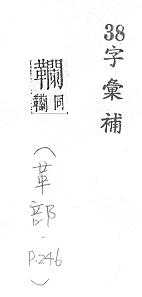 38字彙補
同韊
(革部.P.246)